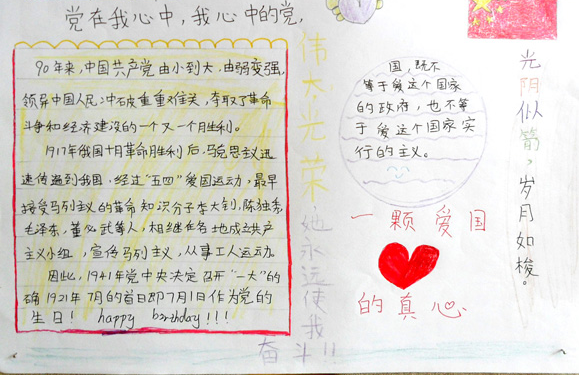 党在我心中，我心中的党，
90年来，中国共产党由小到大，由弱变强，
领导中国人民，冲破重重难关，夺取了革命
斗争和经济建设的一个又一个月生利。
1917年俄国十月革命胜利后，马克思主义迅
速传遍到我国，经过“五四”爱国运动，最早
接受马列主义的革命知识分子李大钊，陈独秀，
毛泽东，董必武等人，相继在各地成立共产
主义小组，宣传马列主义，从事工人运动。
因此，1941年党中央决定召开“一大”的
确1921年7月的首日即7月1日作为党的
生日！ happy birthday！！！
伟大，光荣，她永远使我
奋斗!!
国，既不
等于爱这个国家
的政府，也不等
于爱这个国家实
行的主义。
一颗爱国
的真心
光阴似箭，岁月如梭。